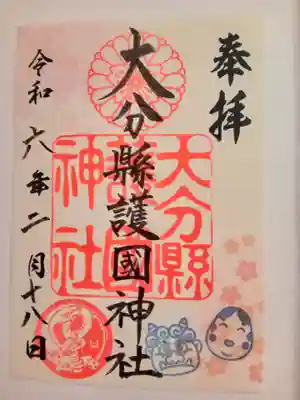 奉拝
大分縣護國神社
大分縣
護國
神社
令和六年二月十八日